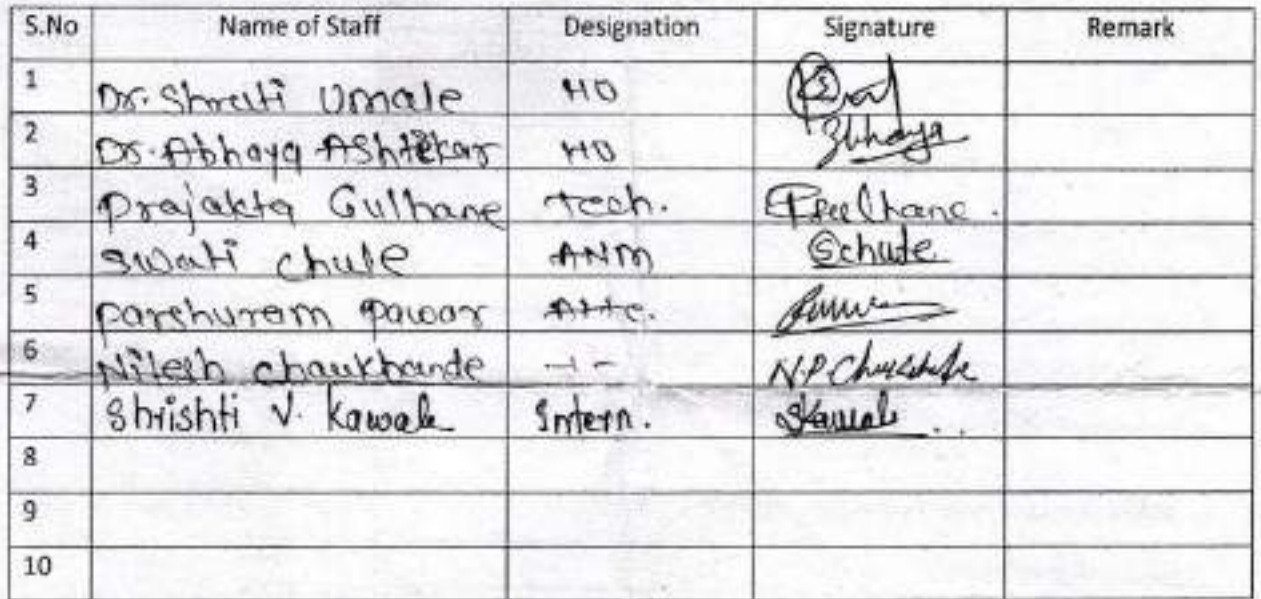 S.No Name of Staff Designation Signature Remark
1 Dr. Shruti Umale MO
2 Dr. Abhaya Ashtekar MO Abhaya
3 Prajakta Gulhane Tech. Gulhane.
4 Swati Chule ANM SChule
5 Parshuram Pawar Atte.
6 Nilesh Chaukhande -11- N.P.
7 Shrishti V. Kawale Intern. SKawale
8
9
10